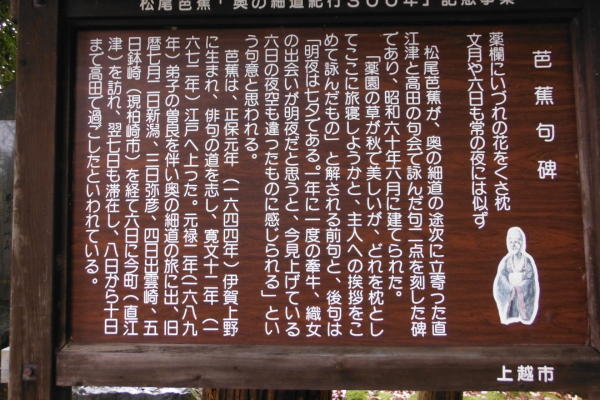 松尾芭蕉「奥の細道紀行300年」記念事業
芭蕉句碑
薬欄にいづれの花をくさ枕
文月や六日も常の夜には似ず
松尾芭蕉が、奥の細道の途次に立寄った直
江津と高田の句会で詠んだ句二点を刻した碑
であり、昭和六十年六月に建てられた。
「薬園の草が秋で美しいが、どれを枕とし
てここに旅寝しようかと、主人への挨拶をこ
めて詠んだもの」と解される前句と、後句は
「明夜は七夕である。一年に一度の牽牛、織女
の出会いが明夜だと思うと、今見上げている
六日の夜空も違ったものに感じられる」とい
う句意と思われる。
芭蕉は、正保元年（一六四四年）伊賀上野
に生まれ、俳句の道を志し、寛文十二年（一
六七二年）江戸へ上った。元禄二年（一六八九
年）弟子の曽良を伴い奥の細道の旅に出、旧
暦七月二日新潟、三日弥彦、四日出雲崎、五
日鉢崎（現柏崎市）を経て六日に今町（直江
津）を訪れ、翌七日も滞在し、八日から十日
まで高田で過ごしたといわれている。
上越市